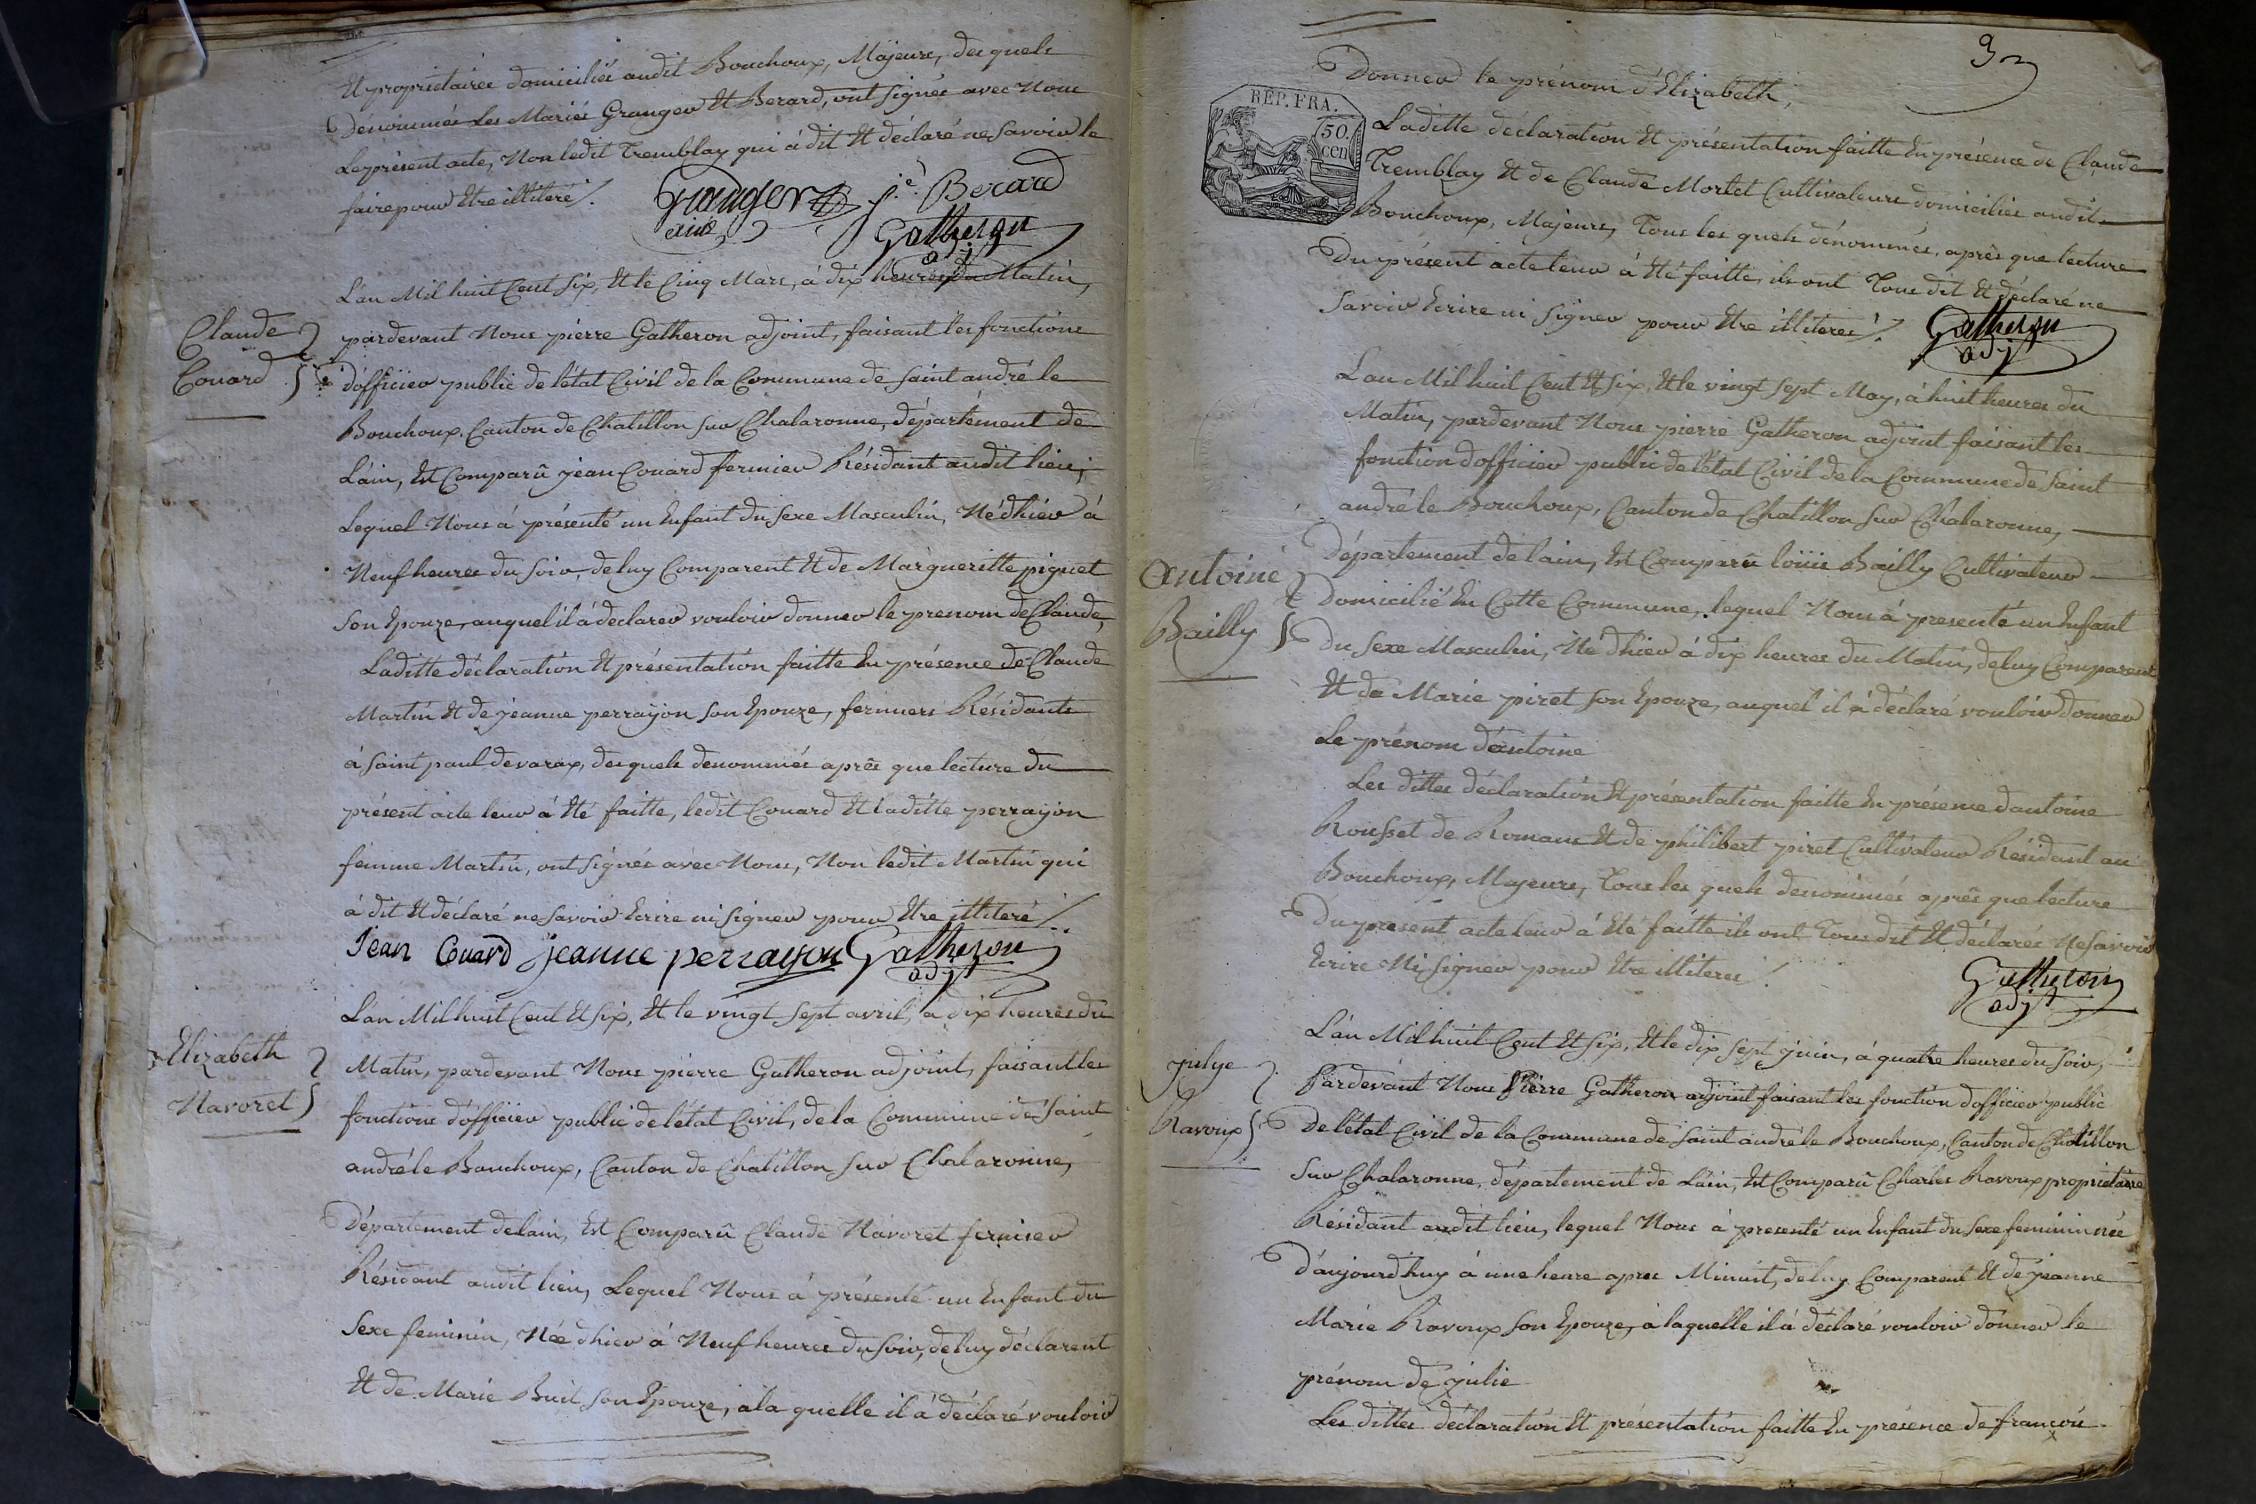 Et proprietaires domiciliés audit Bouchoux, Majeurs, desquels
dénommés Les Mariés Granger Et Berard, ont signés avec Nous
Le présent acte, Non ledit Tremblay qui à dit Et déclaré ne Savoir le
faire pour Etre illiteré /.
Granger
ainé
Berard
Gatheron
adjt
L'an Mil huit Cent Six, Et le Cinq Mars, à dix heures du Matin,
Claude
Couard
pardevant Nous pierre Gatheron adjoint, faisant les fonctions
d'officier public de l'état Civil de la Commune de Saint andré le
Bouchoux, Canton de Chatillon sur Chalaronne, département de
L'ain, Est Comparû jean Couard fermier Résidant audit lieu,
Lequel Nous à présenté un Enfant du Sexe Masculin, Né d'hier à
Neuf heures du Soir, de luy Comparent Et de Margueritte piquet
Son Epouze, auquel il à declarer vouloir donner le prenom de Claude,
Laditte déclaration Et présentation faitte En présence de Claude
Martin Et de jeanne perrayon Son Epouze, fermiers Résidants
à Saint paul de varax, desquels denommés après que lecture du
présent acte leur à Eté faitte, ledit Couard Et laditte perrayon
femme Martin, ont signés avec Nous, Non ledit Martin qui
à dit Et déclaré ne Savoir Ecrire ni Signer pour Etre illiteré /.
Jean Couard jeanne perrayon Gatheron
adjt
L'an Mil huit Cent Et Six, Et le vingt Sept avril, à dix heures du
Elizabeth
Navoret
Matin, pardevant Nous pierre Gatheron adjoint, faisant les
fonctions d'officier public de l'état Civil, de la Commune de Saint
andré le Bouchoux, Canton de Chatillon Sur Chalaronne,
Département de lain, Est Comparû Claude Navoret fermier
Résidant audit lieu, Lequel Nous à présenté un Enfant du
Sexe feminin, Née d'hier à Neuf heures du Soir, de luy déclarent
Et de Marie Buit Son Epouze, à la quelle il à déclaré vouloir
Donner le prénom d'Elizabeth,
REP. FRA.
50.
cen
Laditte déclaration Et présentation faitte En présence de Claude
Tremblay Et de Claude Mortel Cultivateurs domiciliés audit
Bouchoux, Majeurs, Tous les quels dénommés, après que lecture
Du présent acte leur à Eté faitte, ils ont Tous dit Et déclaré ne
Savoir Ecrire ni Signer pour Etre illiteres /.
Gatheron
adjt
L'an Mil huit Cent Et Six, Et le vingt Sept May, à huit heures du
Matin, pardevant Nous pierre Gatheron adjoint faisant les
fonction d'officier public de l'état Civil de la Commune de Saint
andré le Bouchoux, Canton de Chatillon Sur Chalaronne,
Antoine
Bailly
Département de lain, Est Comparû loüis Bailly Cultivateur
Domicilié En Cette Commune, lequel Nous à presenté un Enfant
du Sexe Masculin, Né d'hier à dix heures du Matin, de luy Comparent
Et de Marie piret Son Epouze, auquel il à déclaré vouloir donner
Le prénom d'antoine
Les dittes déclaration Et présentation faitte En présence d'antoine
Rousset de Romans Et de philibert piret Cultivateur Résidant au
Bouchoux, Majeurs, Tous les quels denommés après que lecture
Du présent acte leur à Eté faitte ils ont Tous dit Et déclarés Ne Savoir
Ecrire Ni Signer pour Etre illiteres /.
Gatheron
adjt
L'an Mil huit Cent Et Six, Et le dix Sept juin, à quatre heures du Soir,
julye
Ravoux
Pardevant Nous Pierre Gatheron adjoint faisant les fonction d'officier public
De l'état Civil de la Commune de Saint andré le Bouchoux, Canton de Chatillon
Sur Chalaronne, département de L'ain, Est Comparû Charles Ravoux proprietaire
Résidant audit lieu, lequel Nous à presenté un Enfant du Sexe feminin née
D'aujourd'huy à une heure apres Minuit, de luy Comparent Et de jeanne
Marie Ravoux Son Epouze, à laquelle il à déclaré vouloir donner le
prénom de julie
Les dittes déclaration Et présentation faitte En présence de francois